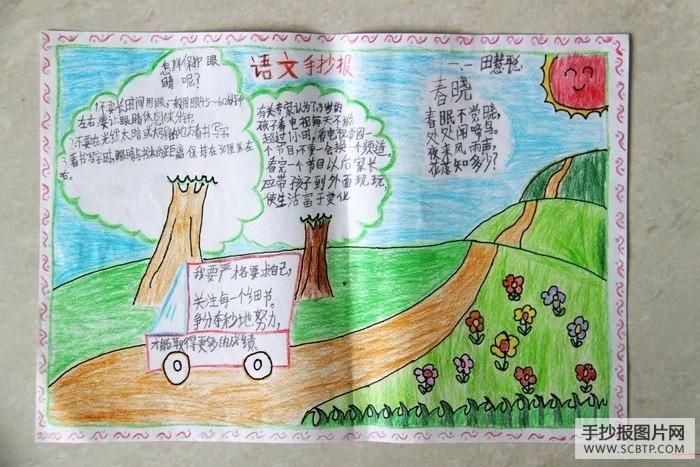 语文手抄报
一.一 田慧聪
怎样保护眼
睛呢?
1.不要长时间用眼,一般用眼45-60分钟
左右要让眼睛休息10来分钟。
2.不要在光线太暗或太强的地方看书写字
3.看书写字时,眼睛与书本的距离保持在30厘米左
右。
有关专家认为7.8岁的
孩子看电视每天不能
超过1小时,看电视看同一
个节目,不要一会换一个频道。
看完一个节目以后家长
应带孩子到外面玩玩,
使生活富于变化
春晓
春眠不觉晓,
处处闻啼鸟。
夜来风雨声,
花落知多少?
我要严格要求自己,
关注每一个细节。
争分夺秒地努力,
才能取得更多的成绩。
手抄报图片网
WWW.SCBTP.COM